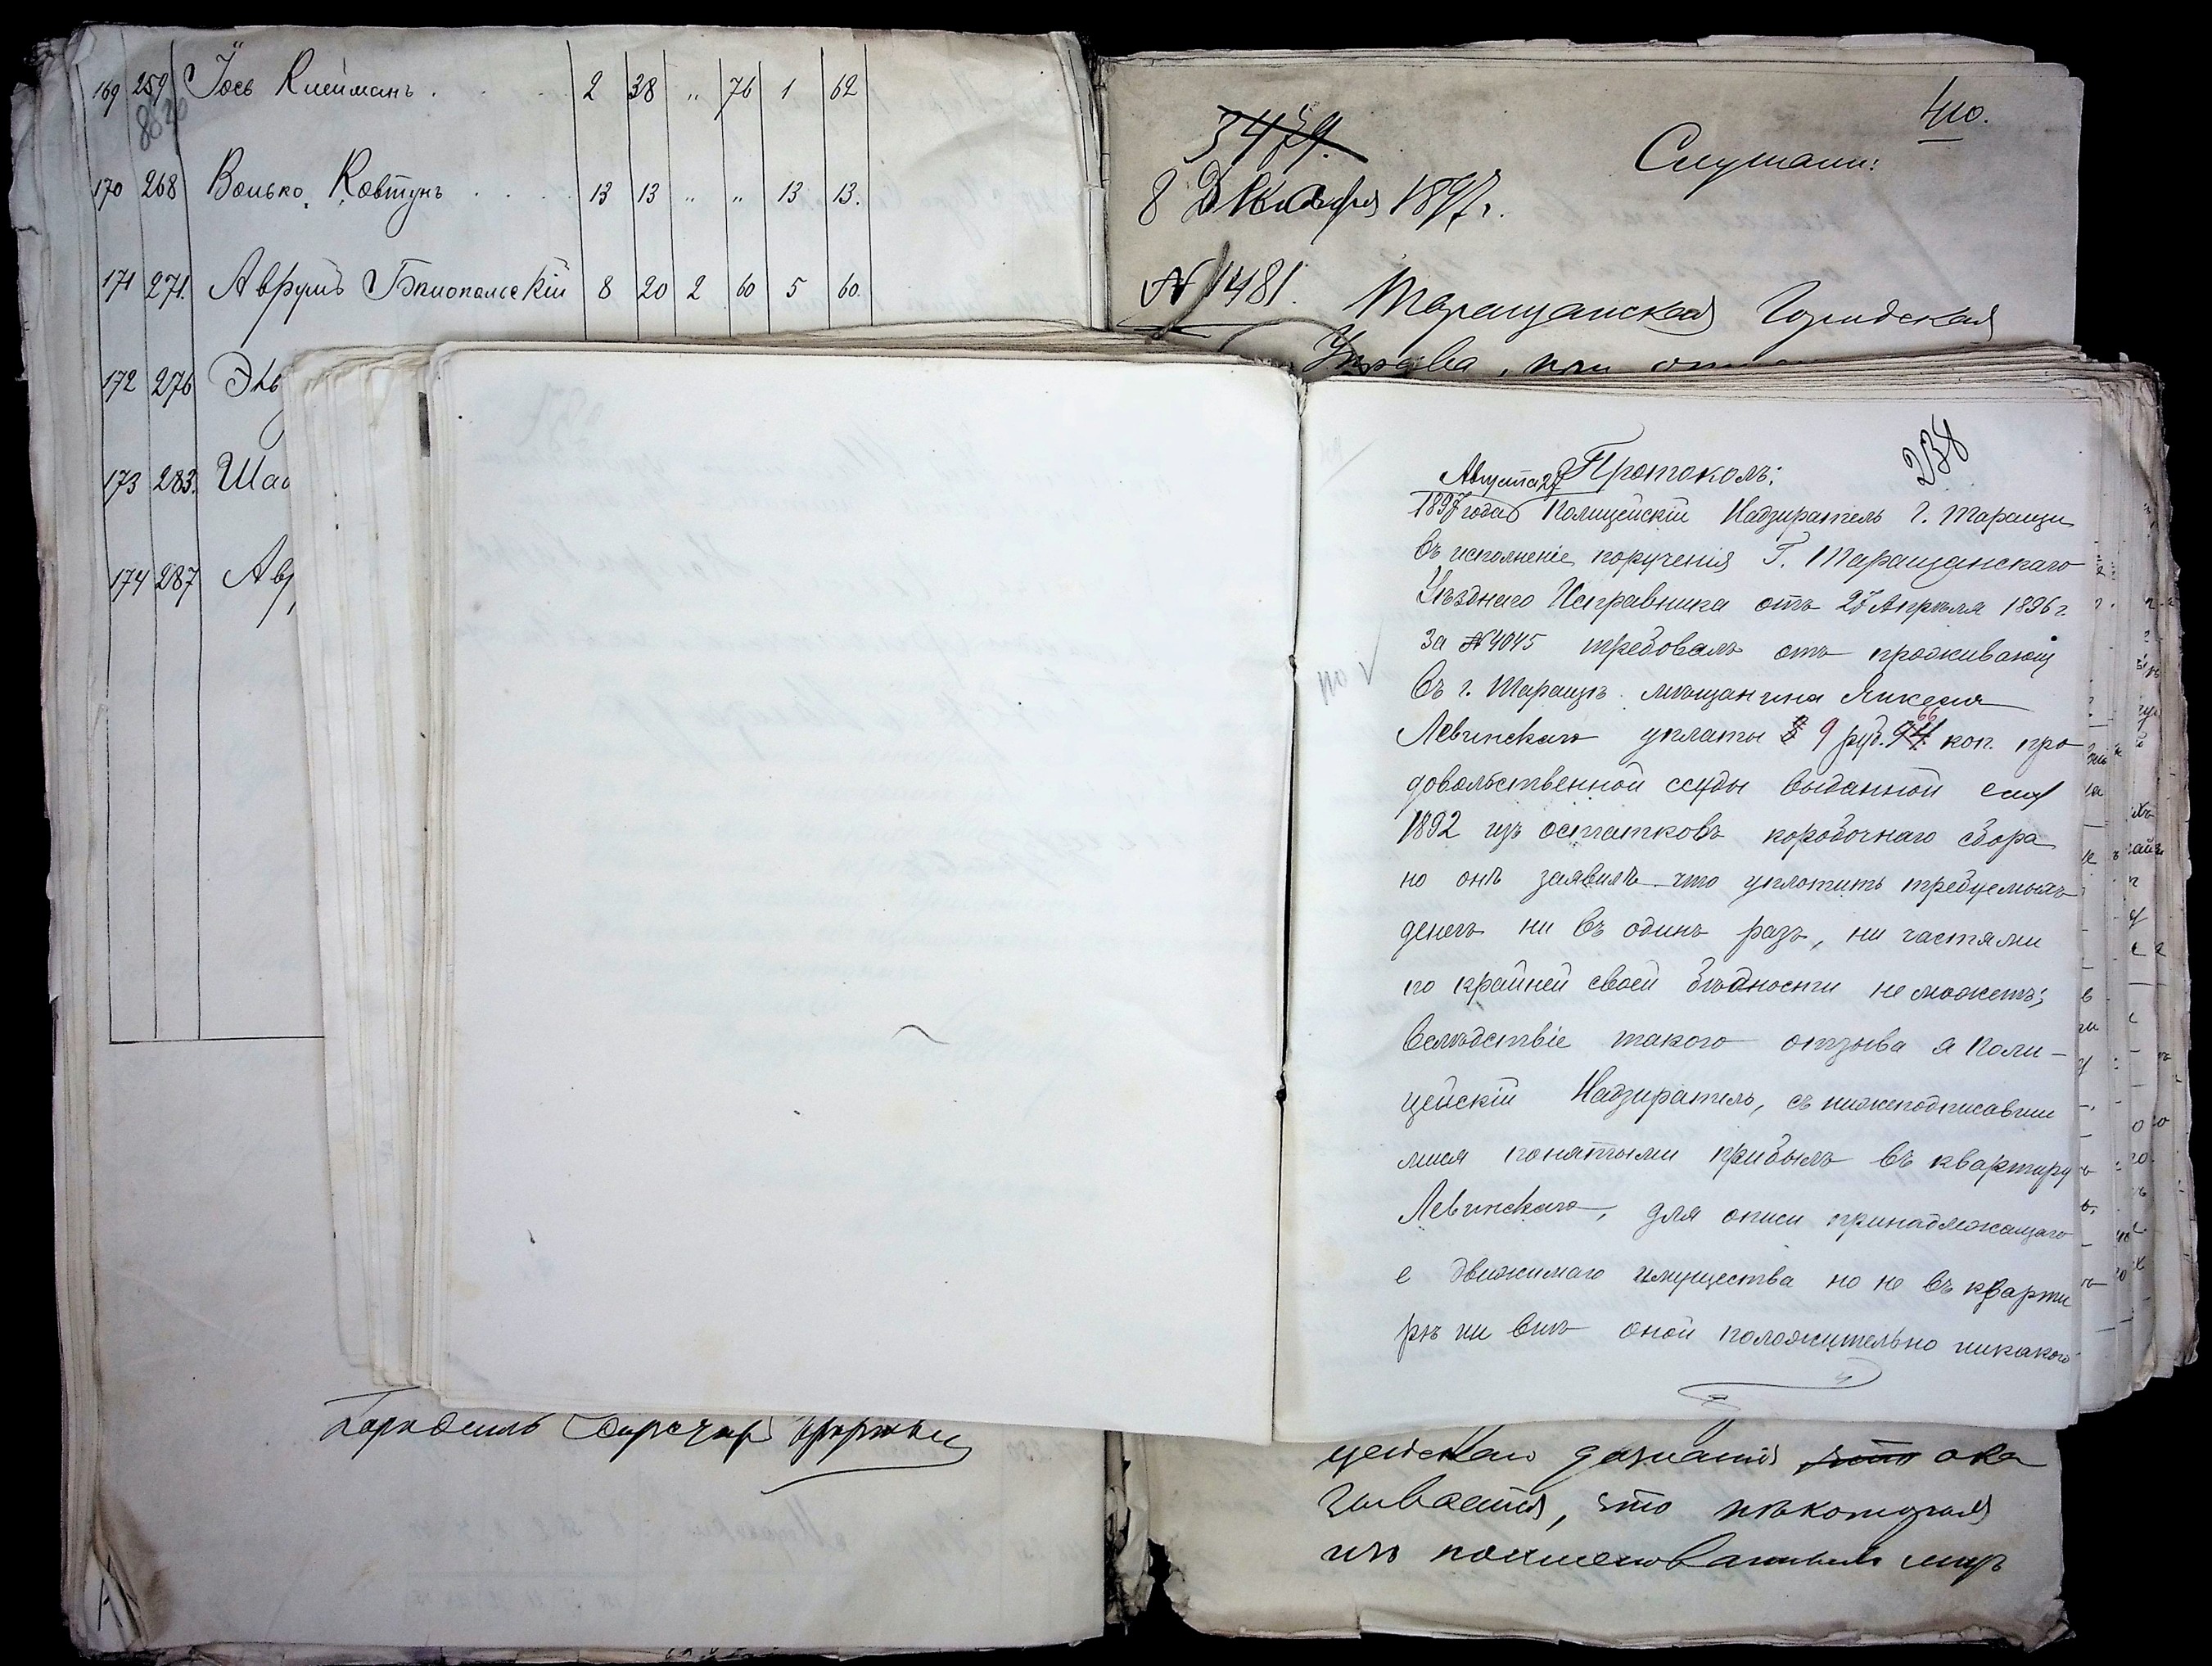 169 259 Іось Клейманъ . . . 2 38 „ 76 1 62
8620
170 268 Волько Ковтунъ . . . 13 13 „ „ 13 13.
171 271. Аврумъ Бялопольскій 8 20 2 60 5 60.
172 276
173 283.
174 287
410.
3479.
Слушали:
8 Декабря 1897 г.
№ 1481.
Таращанская Городская
Управа, при
238
Протоколъ:
Августа 27
1897 года Полицейскій Надзиратель г. Таращи
въ исполненіе порученія Г. Таращанскаго
Уѣзднаго Исправника отъ 27 Апрѣля 1896 г
за № 4045 требовалъ отъ проживающ
въ г. Таращѣ мѣщанина Янкеля
Левинскаго уплаты 9 руб. 94 66 коп. про
довольственной ссуды выданной ему
1892 изъ остатковъ коробочнаго сбора
но онъ заявилъ что уплотить требуемыхъ
денегъ ни въ одинъ разъ, ни частями
по крайней своей бѣдности не можетъ;
Вслѣдствіе такого отзыва я Поли-
цейскій Надзиратель, съ нижеподписавши
мися понятыми прибылъ въ квартиру
Левинскаго, для описи принадлежащаго
е движимаго имущества но не въ кварти
рѣ ни внѣ оной положительно никакого
цейскаго дознанія что ока
зывается, что нѣкоторыя
изъ поименованныхъ лицъ